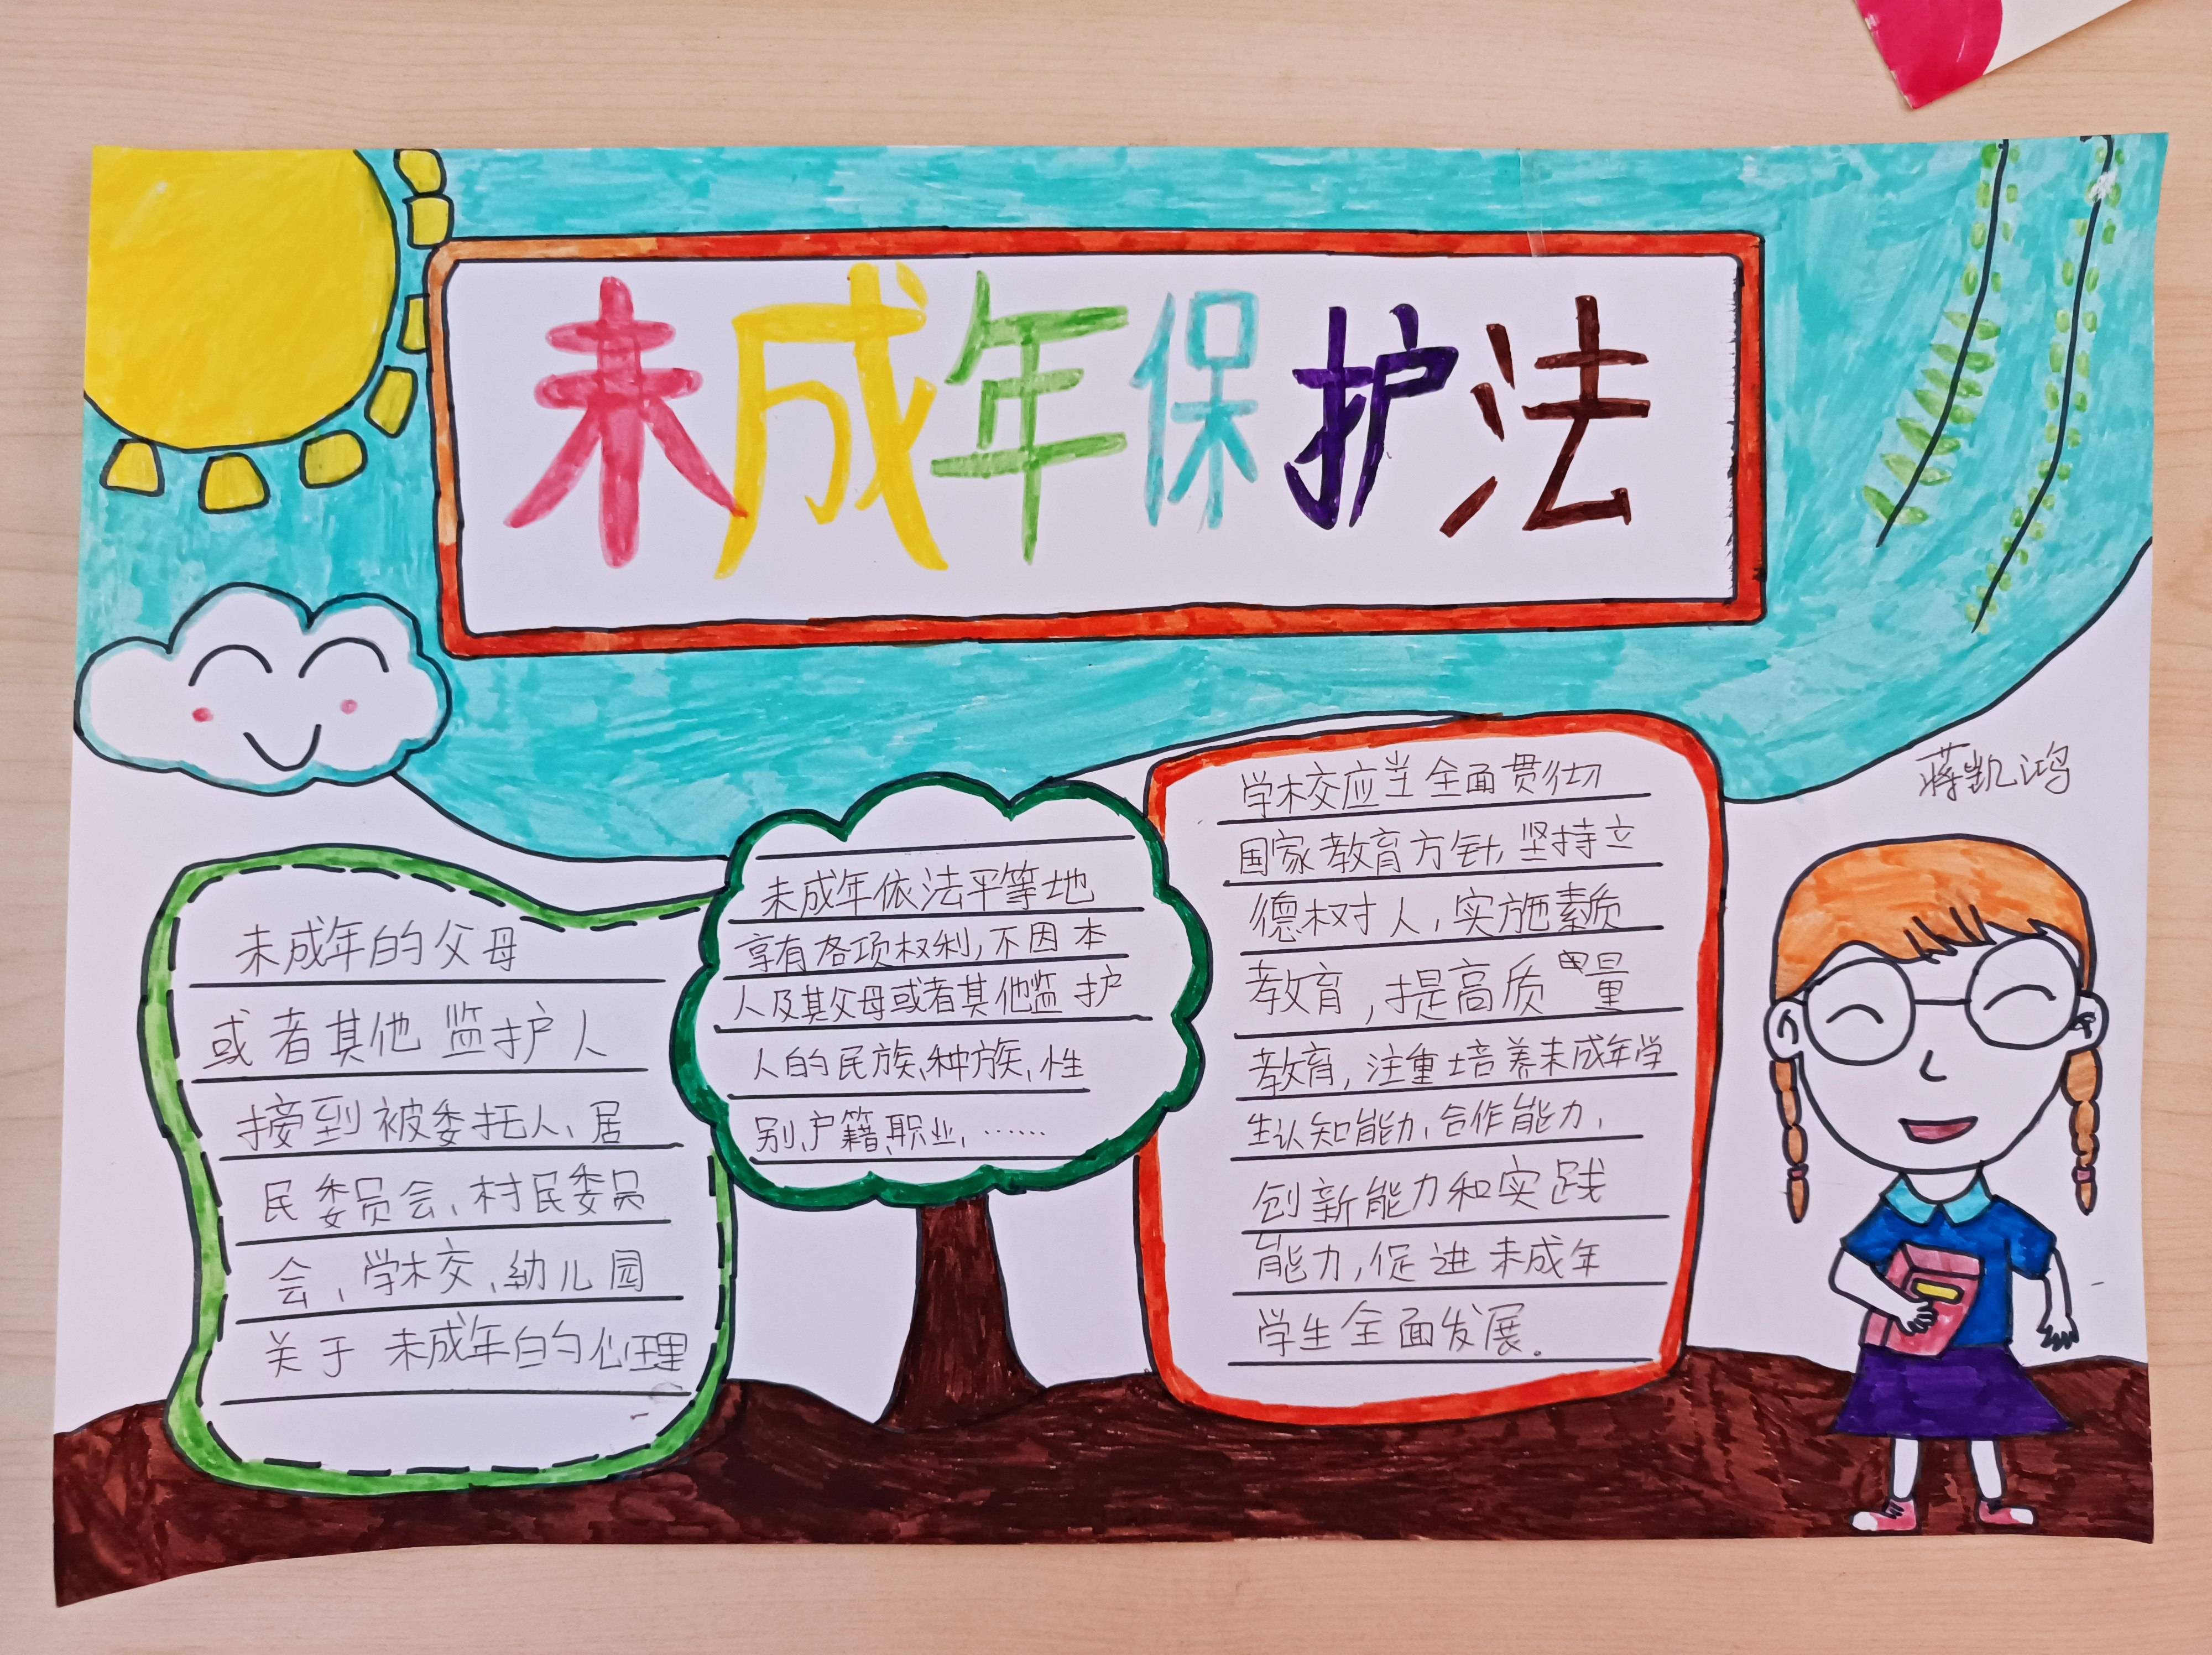 未成年保护法
蒋凯鸿
未成年的父母
或者其他监护人
接到被委托人、居
民委员会、村民委员
会、学校、幼儿园
关于未成年的心理
未成年依法平等地
享有各项权利,不因本
人及其父母或者其他监护
人的民族、种族、性
别、户籍、职业、……
学校应当全面贯彻
国家教育方针,坚持立
德树人,实施素质
教育,提高质量
教育,注重培养未成年学
生认知能力,合作能力,
创新能力和实践
能力,促进未成年
学生全面发展。